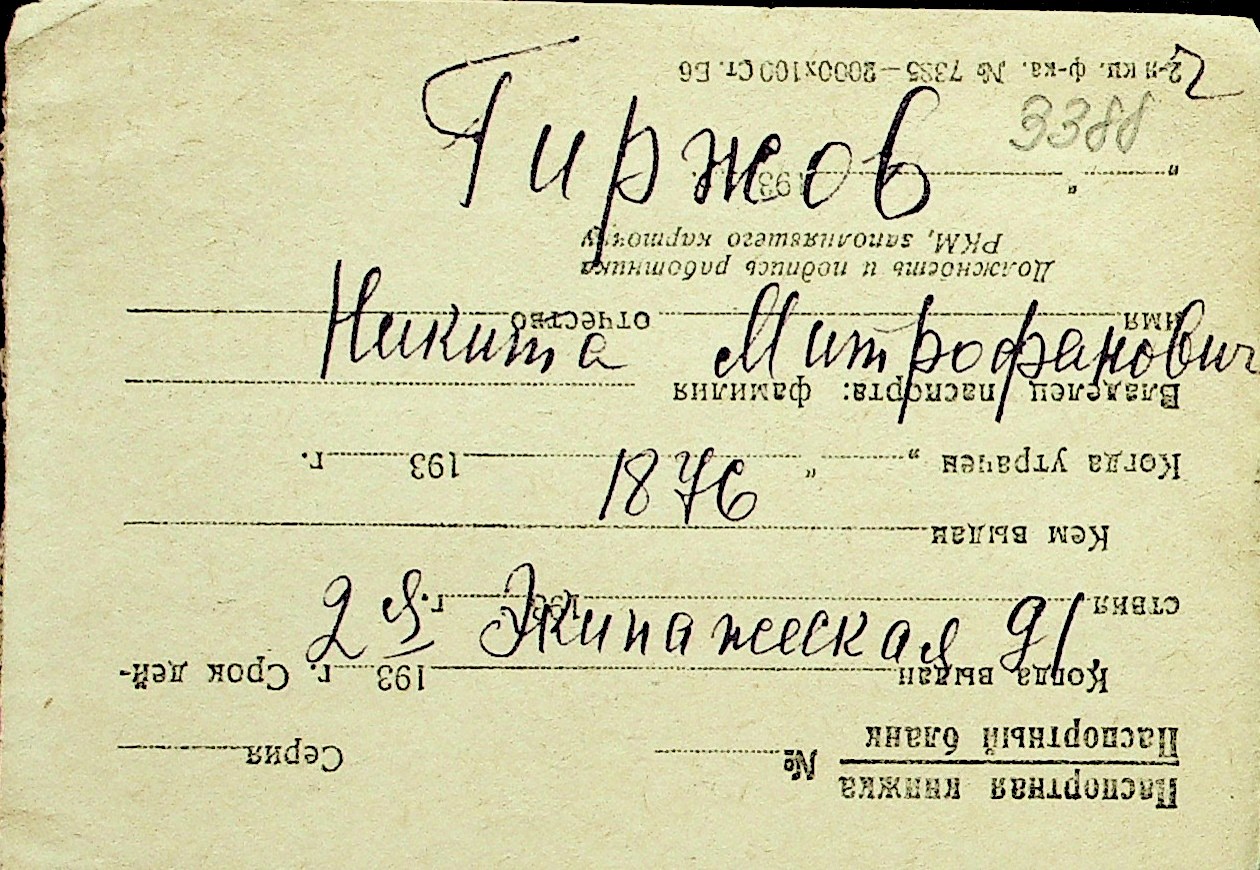 Гиржов
Никита Митрофанович
1876
2 я Экипажеская 91
3388
Паспортная книжка
Паспортный бланк № Серия
Когда выдан 193 г. Срок дей-
ствия 193 г.
Кем выдан
Когда утрачен „ “ 193 г.
Владелец паспорта: фамилия
имя отчество
Должность и подпись работника
РКМ, заполнявшего карточку
„ “ 193 г.
2-я кн. ф-ка. № 7385—2000х100 Ст. Б6